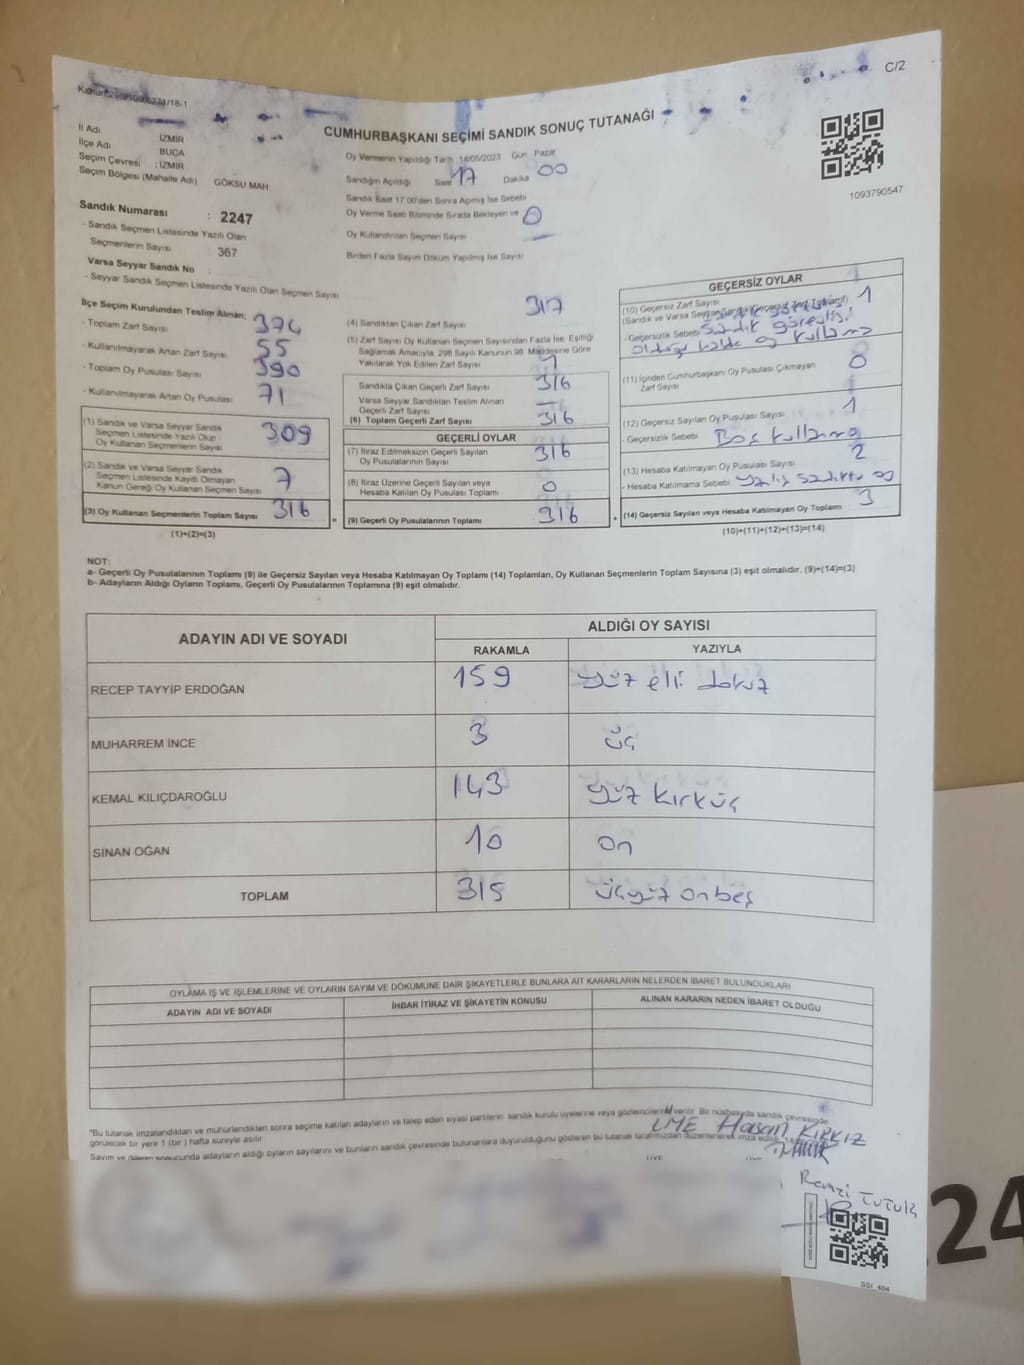 C/2
CUMHURBAŞKANI SEÇİMİ SANDIK SONUÇ TUTANAĞI
İl Adı İZMİR
İlçe Adı BUCA
Seçim Çevresi : İZMİR
Seçim Bölgesi (Mahalle Adı) GÖKSU MAH
Oy Vermenin Yapıldığı Tarih 14/05/2023 Gün Pazar
Sandığın Açıldığı Saat 17 Dakika 00
Sandık Saat 17:00'den Sonra Açılmış İse Sebebi
Oy Verme Saati Bitiminde Sırada Bekleyen ve 0
Oy Kullandırılan Seçmen Sayısı
Birden Fazla Sayım Döküm Yapılmış İse Sayısı
1093790547
Sandık Numarası : 2247
- Sandık Seçmen Listesinde Yazılı Olan
Seçmenlerin Sayısı : 367
Varsa Seyyar Sandık No
- Seyyar Sandık Seçmen Listesinde Yazılı Olan Seçmen Sayısı
İlçe Seçim Kurulundan Teslim Alınan;
- Toplam Zarf Sayısı 374
- Kullanılmayarak Artan Zarf Sayısı 55
- Toplam Oy Pusulası Sayısı 390
- Kullanılmayarak Artan Oy Pusulası 71
(1) Sandık ve Varsa Seyyar Sandık
Seçmen Listesinde Yazılı Olup
Oy Kullanan Seçmenlerin Sayısı 309
(2) Sandık ve Varsa Seyyar Sandık
Seçmen Listesinde Kaydı Olmayan
Kanun Gereği Oy Kullanan Seçmen Sayısı 7
(3) Oy Kullanan Seçmenlerin Toplam Sayısı 316
(1)+(2)=(3)
(4) Sandıktan Çıkan Zarf Sayısı 317
(5) Zarf Sayısı Oy Kullanan Seçmen Sayısından Fazla İse, Eşitliği
Sağlamak Amacıyla, 298 Sayılı Kanunun 98. Maddesine Göre
Yakılarak Yok Edilen Zarf Sayısı 1
Sandıkta Çıkan Geçerli Zarf Sayısı 316
Varsa Seyyar Sandıktan Teslim Alınan
Geçerli Zarf Sayısı —
(6) Toplam Geçerli Zarf Sayısı 316
GEÇERLİ OYLAR
(7) İtiraz Edilmeksizin Geçerli Sayılan
Oy Pusulalarının Sayısı 316
(8) İtiraz Üzerine Geçerli Sayılan veya
Hesaba Katılan Oy Pusulası Toplamı 0
(9) Geçerli Oy Pusulalarının Toplamı 316
GEÇERSİZ OYLAR
(10) Geçersiz Zarf Sayısı 1
(Sandık ve Varsa Seyyar Sandık Geçersiz Zarf Toplamı)
- Geçersizlik Sebebi Sandık görevlisi
olduğu halde oy kullanma
(11) İçinden Cumhurbaşkanı Oy Pusulası Çıkmayan 0
Zarf Sayısı
(12) Geçersiz Sayılan Oy Pusulası Sayısı 1
- Geçersizlik Sebebi Boş kullanma
(13) Hesaba Katılmayan Oy Pusulası Sayısı 2
- Hesaba Katılmama Sebebi Yanlış sandıkta oy
(14) Geçersiz Sayılan veya Hesaba Katılmayan Oy Toplamı 3
(10)+(11)+(12)+(13)=(14)
NOT:
a- Geçerli Oy Pusulalarının Toplamı (9) ile Geçersiz Sayılan veya Hesaba Katılmayan Oy Toplamı (14) Toplamları, Oy Kullanan Seçmenlerin Toplam Sayısına (3) eşit olmalıdır. (9)+(14)=(3)
b- Adayların Aldığı Oyların Toplamı, Geçerli Oy Pusulalarının Toplamına (9) eşit olmalıdır.
ADAYIN ADI VE SOYADI ALDIĞI OY SAYISI
RAKAMLA YAZIYLA
RECEP TAYYİP ERDOĞAN 159 yüz elli dokuz
MUHARREM İNCE 3 üç
KEMAL KILIÇDAROĞLU 143 yüz kırküç
SİNAN OĞAN 10 on
TOPLAM 315 üçyüz onbeş
OYLAMA İŞ VE İŞLEMLERİNE VE OYLARIN SAYIM VE DÖKÜMÜNE DAİR ŞİKAYETLERLE BUNLARA AİT KARARLARIN NELERDEN İBARET BULUNDUKLARI
ADAYIN ADI VE SOYADI İHBAR İTİRAZ VE ŞİKAYETİN KONUSU ALINAN KARARIN NEDEN İBARET OLDUĞU
"Bu tutanak imzalandıktan ve mühürlendikten sonra seçime katılan adayların ve talep eden siyasi partilerin sandık kurulu üyelerine veya gözlemcilerine verilir. Bir nüshası da sandık çevresinde
görülecek bir yere 1 (bir) hafta süreyle asılır
Sayım ve döküm sonucunda adayların aldığı oyların sayılarını ve bunların sandık çevresinde bulunanlara duyurulduğunu gösteren bu tutanak tarafımızdan düzenlenerek imza edildi.
Hasan KIRKIZ
Remzi TUTUK
SSI_404
24